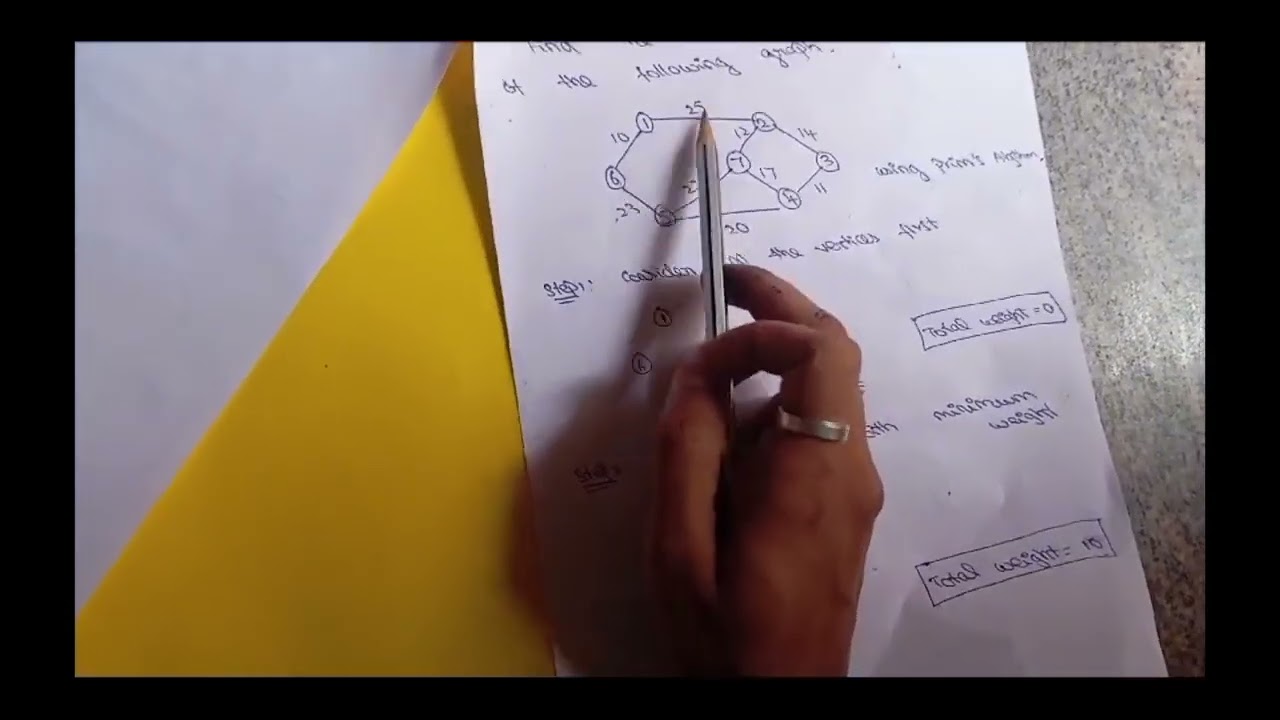 Find
of the following graph.
25
1 2
10 12 14
7 3
6 17 using Prim's Algthm.
11
4
23
5
20
Step1: the vertices first
1
Total weight = 0
6
minimum
weight
Step
Total weight = 10